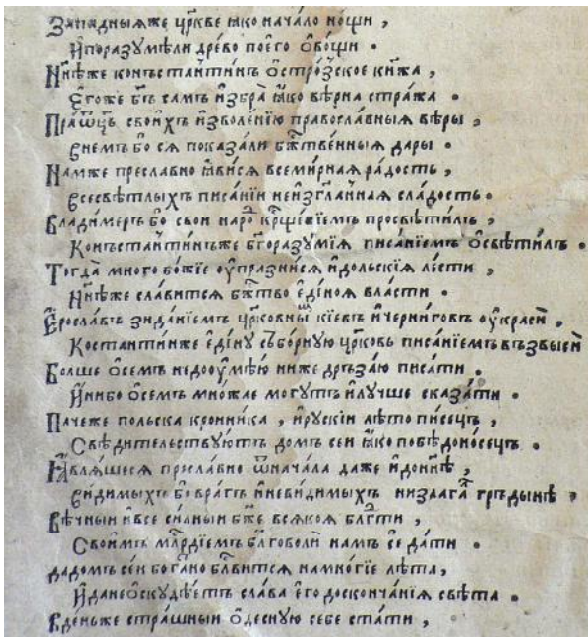 Западныѧже цр҃кве ꙗко нача́ло но́щи ,
И҆поразꙋмѣ́ли дре́во пое҆го̀ о҆во́щи .
Нн҃ѣже конъстанти́нъ о҆стро́зское кнѧ́жа ,
Е҆го́же бг҃ъ самъ и҆збра̀ ꙗ҆́ко вѣ́рна стра́жа .
Пра́ѿц҃ъ свои́хъ и҆зволе́нїю правосла́вныѧ вѣ́ры ,
Внемъ бо сѧ показа́ли бж҃твенныѧ да́ры .
На́мже пресла́вно ꙗ҆ви́сѧ всеми́рнаѧ ра́дость ,
Всесвѣ́тлыхъ писа́нїи неизгл҃а́ннаѧ сла́дость .
Влади́меръ бо свои наро́дъ кр҃ще́нїемъ просвѣти́лъ ,
Конъстанти́нъже бг҃ора́зꙋмїѧ писа́нїемъ ѡ҆свѣти́лъ .
Тогда̀ много бо́жїе ᲂу҆праздни́сѧ и҆́дольскїѧ ле́сти ,
Нн҃ѣже сла́витсѧ бж҃тво е҆ди́ноѧ вла́сти .
Е҆росла́въ зида́нїемъ цр҃ко́вным кі́евъ и҆черни́говъ ᲂу҆красѝ ,
Костанти́нже е҆ди́нꙋ съборную цр҃ковь писа́нїемъ възвы́си
Болше о҆семъ недоᲂу҆мѣ́ю ниже дръза́ю писа́ти .
И҆ни́бо о҆семъ мно́жае мо́гꙋтъ и҆лꙋчше сказа́ти .
Па́чеже по́льска кро́нника , и҆рꙋ́скїи лѣ́то пи́сецъ ,
Свѣди́тельствꙋютъ домъ сеи ꙗ҆́ко побѣдоно́сецъ .
Ꙗ҆влѧ́шесѧ пресла́вно ѿнача́ла да́же и҆дони́нѣ ,
Види́мыхъ бо вра́гъ и҆неви́димыхъ низлага́ѧ гръды́нѣ .
Вѣ́чныи и҆все си́лныи бж҃е всѧ́коѧ блг҃ти ,
Свои́мъ млр҃дїемъ бл҃говоли̇̀ намъ се да́ти .
дадомъ се́и бог҃а́но бл҃ви́тсѧ намно́гїе лѣ́та ,
И҆данеѡ҆скꙋдѣ́етъ сла́ва е҆го̀ доскон̾ча́нїѧ свѣ́та .
Вде́ньже стра́шныи о҆деснꙋ́ю себе ста́ти ,